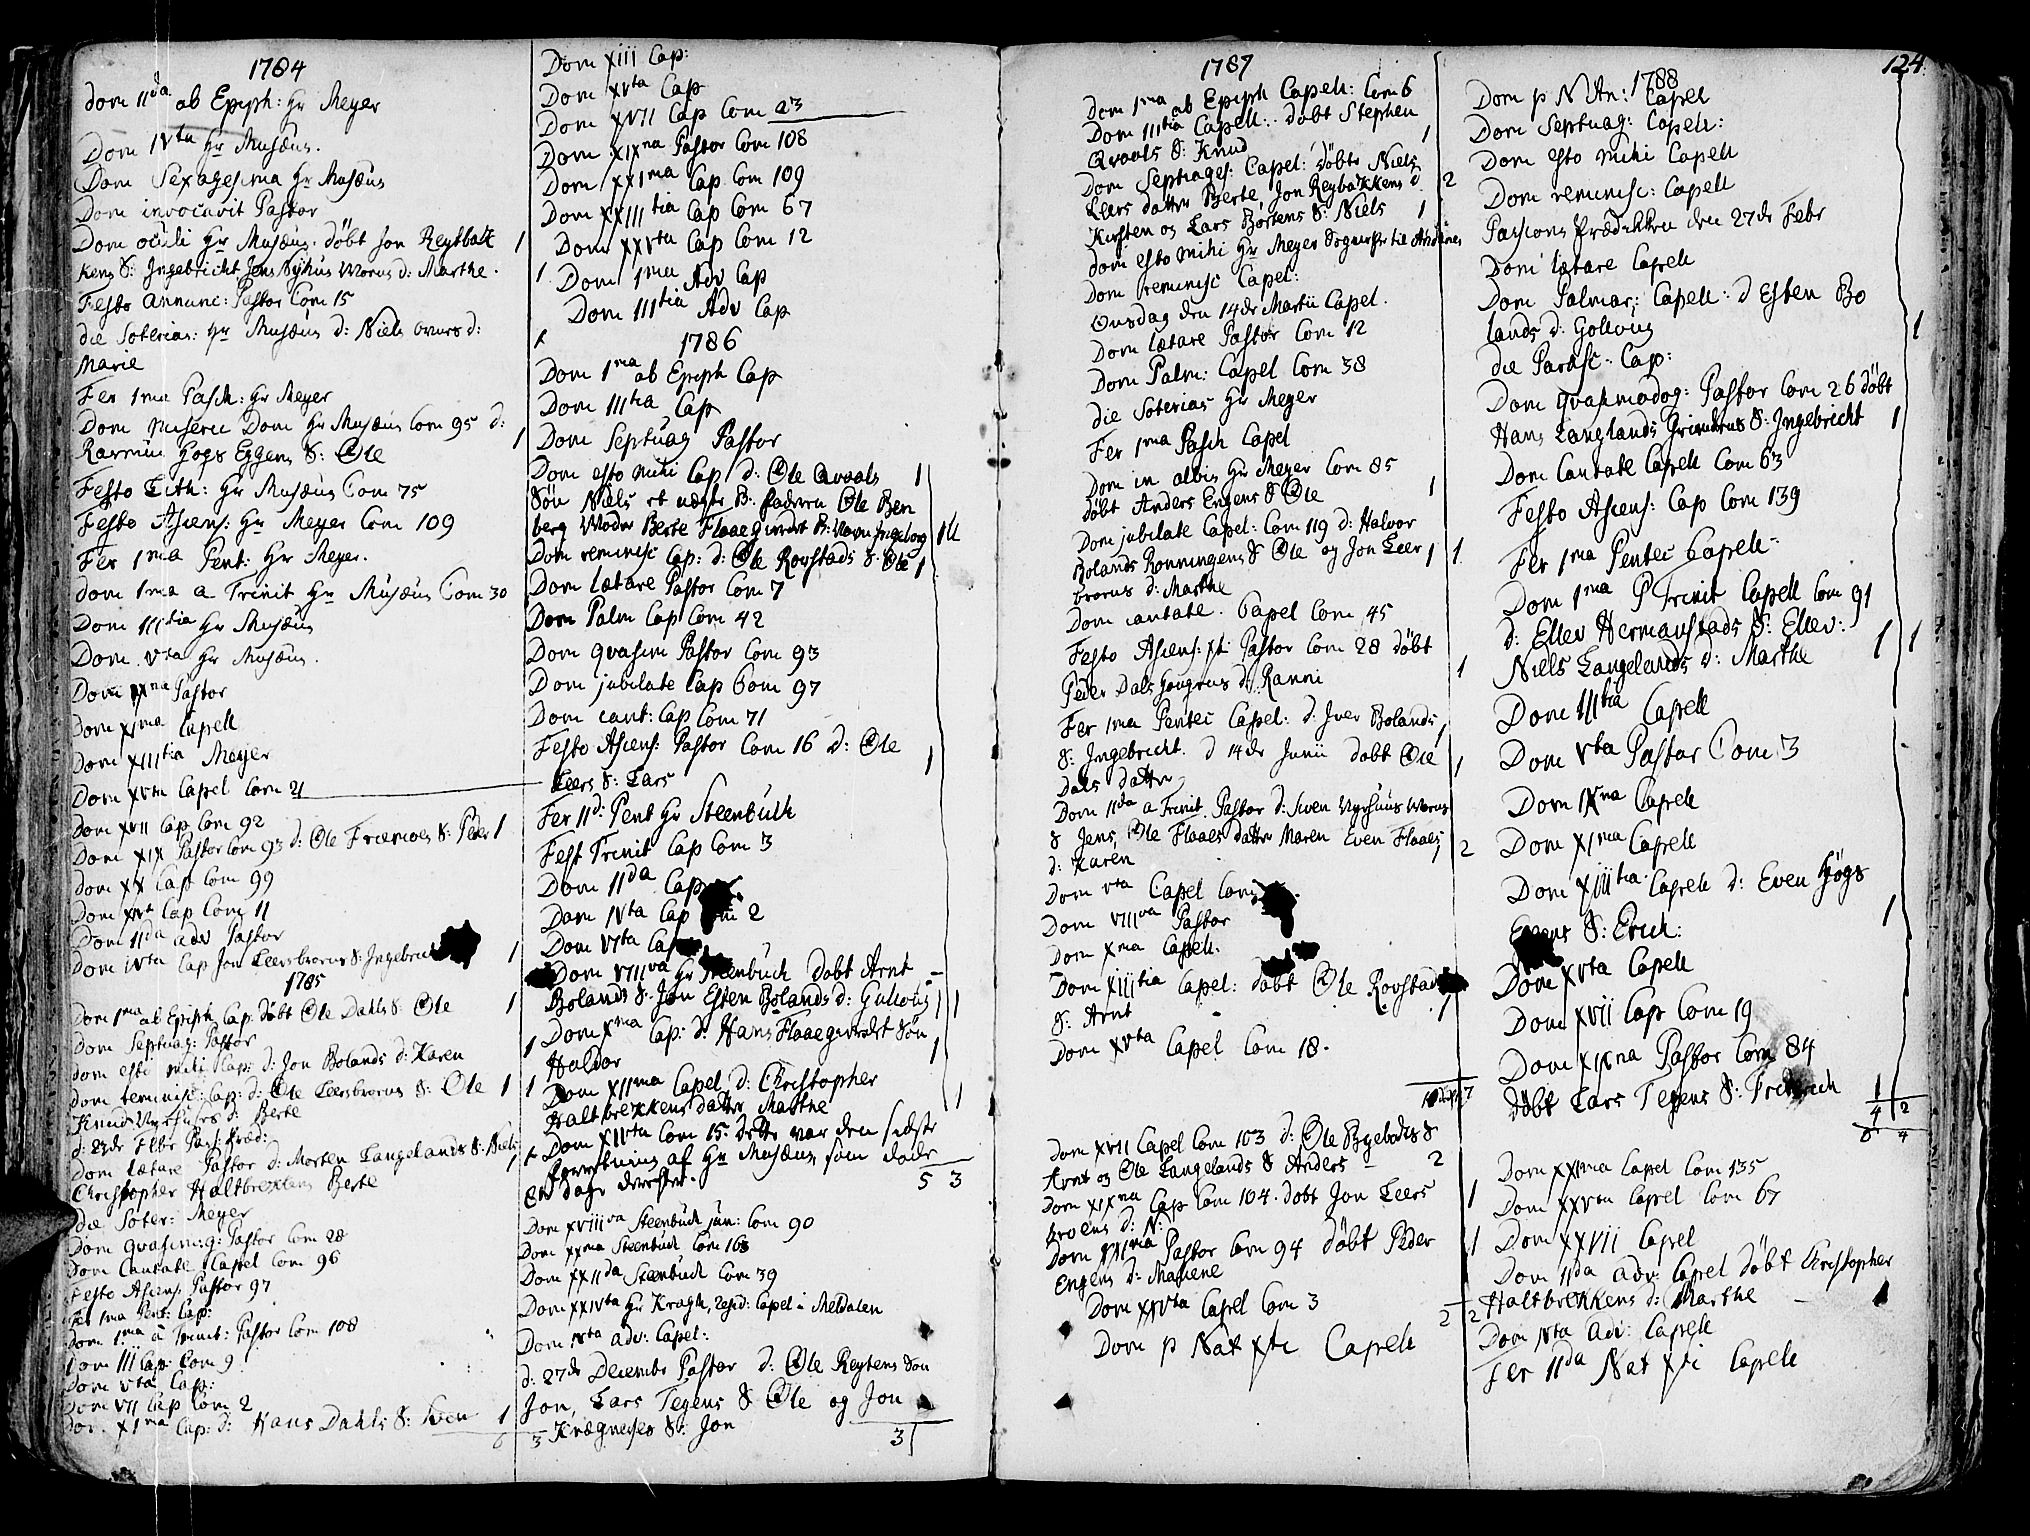 1784
Dom 11da ab Epiph: Hr Meyer
Dom IVta Hr Musæus.
Dom Sexagesima Hr Musæus
Dom invocavit Pastor
Dom oculi Hr Musæus. döbt Jon Reytbak 1
kens S: Ingebricht Jens Nyhus Moens d: Marthe. 1
Festo Annunc: Pastor Com 15
die Soterias: Hr Musæus d: Niels d:
Marie 1
Fer 1ma Pasch: Hr Meyer
Dom Miseric Dom Hr Musæus Com 95 d:
Rasmus Hogs Eggens S: Ole 1
Festo Lith: Hr Musæus Com 75
Festo Ascens: Hr Meyer Com 109
Fer 1ma Pent: Hr Meyer.
Dom 1ma a Trinit Hr Musæus Com 30
Dom IIItia Hr Musæus
Dom Vta Hr Musæus.
Dom IXna Pastor
Dom XIma Capell
Dom XIIItia Meyer
Dom XVta Capel Com 21
Dom XVII Cap Com 92
Dom XIX Pastor Com 93 d: Ole Fræmoes S: Peder 1
Dom XX Cap Com 99
Dom Cap Com 11
Dom 11da adv Pastor
Dom IVta Cap Jon Leersbroens S: Ingebrich 1
1785
Dom 1ma ab Epiph Cap döbt Ole Dahls S: Ole 1
Dom Septuag: Pastor
Dom esto mihi Cap: d: Jon Bolands d: Karen 1
Dom reminisc: Cap: d: Ole Leersbroens S: Ole 1
Knud d: Berte 1
d: 23de Febr Pass: Præd:
Dom lætare Pastor d: Morten Langelands S: Niels 1
Christopher Haltbrekkens Berte 1
die Soter: Meyer
Dom qvasim:g: Pastor Com 28
Dom Cantate Capel Com 96
Festo Ascens. Pastor 97
Fer 1ma Pent: Cap:
Dom 1ma a Trinit: Pastor Com 108
Dom III Cap: Com 9
Dom Vta Cap:
Dom VII Cap Com 2
Dom XIma Cap: d: Hans Dahls S: Sven 1
6 3
Dom XIII Cap:
Dom XVta Cap
Dom XVII Cap Com 23
Dom XIXna Pastor Com 108
Dom XXIma Cap Com 109
Dom XXIIItia Cap Com 67
Dom XXVta Cap Com 12
Dom 1ma Adv Cap
Dom IIItia Adv Cap
1786
Dom 1ma ab Epiph Cap
Dom IIItia Cap
Dom Septuag Pastor
Dom esto mihi Cap d: Ole Qvaals 1
Sön Niels et uægte B: faderen Ole Ben
berg Moder Berte Flaaegierdet B: Navn Ingeborg
Dom reminisc Cap: d: Ole Rovstads S: Ole 1
Dom lætare Pastor Com 7
Dom Palm Cap Com 42
Dom qvasim Pastor Com 93
Dom jubilate Cap Com 97
Dom cant: Cap Com 71
Festo Ascens: Pastor Com 16 d: Ole
Leers S: Lars 1
Fer 11d: Pent Hr Steenbuch
Fest Trinit Cap Com 3
Dom 11da Cap
Dom IVta Cap 2
Dom VIta Cap
Dom VIIIva Hr Steenbuch döbt Arnt
Bolands S: Jon Esten Bolands d: Gulloug 1 1
Dom Xma Cap: d: Hans Flaaegierdet Sön
Haldor 1
Dom XIIma Capel d: Christopher
Haltbrekkens datter Marthe 1
Dom XIVta Com 15: dette var den sidste
forretning af Hr Musæus som döde
otte dage derefter. 5 3
Dom XVIIIva Steenbuch jun: Com 90
Dom XXma Steenbuch Com 168
Dom XXIIda Steenbuch Com 39
Dom XXIVta Hr Kragh, resid: Capel i Meldalen
Dom IVta adv: Capel:
d: 27de Decembr Pastor d: Ole Reytens Sön
Jon, Lars Tegens S Ole og Jon
Krægneses S: Jon 3
1787
Dom 1ma ab Epiph Capell: Com 6
Dom IIItia Capell: döbt Stephen
Qvaals S: Knud 1
Dom Septuages: Capel: döbte Niels
Leers datter Berte, Jon Reybakkens d. 2
Kirsten og Lars Bortens S: Niels 1
Dom esto mihi Hr Meyer
Dom reminisc Capel:
Onsdag den 14de Martii Capel.
Dom lætare Pastor Com 12
Dom Palm: Capel Com 38
die Soterias Hr Meyer
Fer 1ma Pasch Capel
Dom in albis Hr Meyer Com 85
döbt Anders Engens S Ole 1
Dom jubilate Capel: Com 119 d: Halvor
Bolands Ronningens S Ole og Jon Leer 1
broens d: Marthe 1
Dom cantate. Capel Com 45
Festo Ascens: xti Pastor Com 28 döbt
Peder Dals Hougens d: Ranni 1
Fer 1ma Pentec Capel: d: Iver Bolands
S: Ingebricht. d 14de Junii döbt Ole 1
Dals datter 1
Dom 11da a Trinit Pastor d: Sven Moens
S Jens, Ole Flaaes datter Maren Even Flaaes 1
d: Karen 2
Dom Vta Capel Com
Dom VIIIva Pastor
Dom Xma Capell:
Dom XIIItia Capel: döbt Ole Rovstads
S: Arnt 1
Dom XVta Capel Com 18.
7
Dom XVII Capel Com 103 d: Ole S
Arnt og Ole Langelands S Anders 2
Dom XIXna Cap Com 104. döbt Jon Leers
broens d: N: 1
Dom XXIma Pastor Com 94 döbt Peder
Engens d: Mariene 1
Dom XXVta Capel Com 3
2 2
Dom p Nat xti Capell
124
1788
Dom p N An: Capel
Dom Septuag: Capell:
Dom esto mihi Capell
Dom reminisc: Capell
Passions Prædikken den 27de Febr
Dom lætare Capell
Dom Palmar: Capell: d Esten Bo
lands d: Golloug 1
die Parasc: Cap:
Dom qvasimodog: Pastor Com 26 döbt
Hans Langlands S: Ingebricht 1
Dom Cantate Capell Com 63
Festo Ascens: Cap Com 139
Fer 1ma Pentec Capell
Dom 1ma P Trinit Capell Com 91
d: Ellev Hermanstads S: Ellev: 1
Niels Langelands d: Marthe 1
Dom IIItia Capell
Dom Vta Pastor Com 3
Dom IXna Capell
Dom XIma Capell
Dom XIIItia. Capell d: Even Högs
Eggens S: Erich: 1
Dom XVta Capell
Dom XVII Cap Com 19
Dom XIXna Pastor Com 84
döbt Lars Tegens S: Friderich 1
4 2
Dom XXIma Capel Com 135
Dom XXVta Capel Com 67
Dom XXVII Capel
Dom 11da Adv: Capel döbt Christopher
Haltbrekkens d: Marthe 1
Dom IVta Adv: Capell
Fer 11da Nat xti Capell